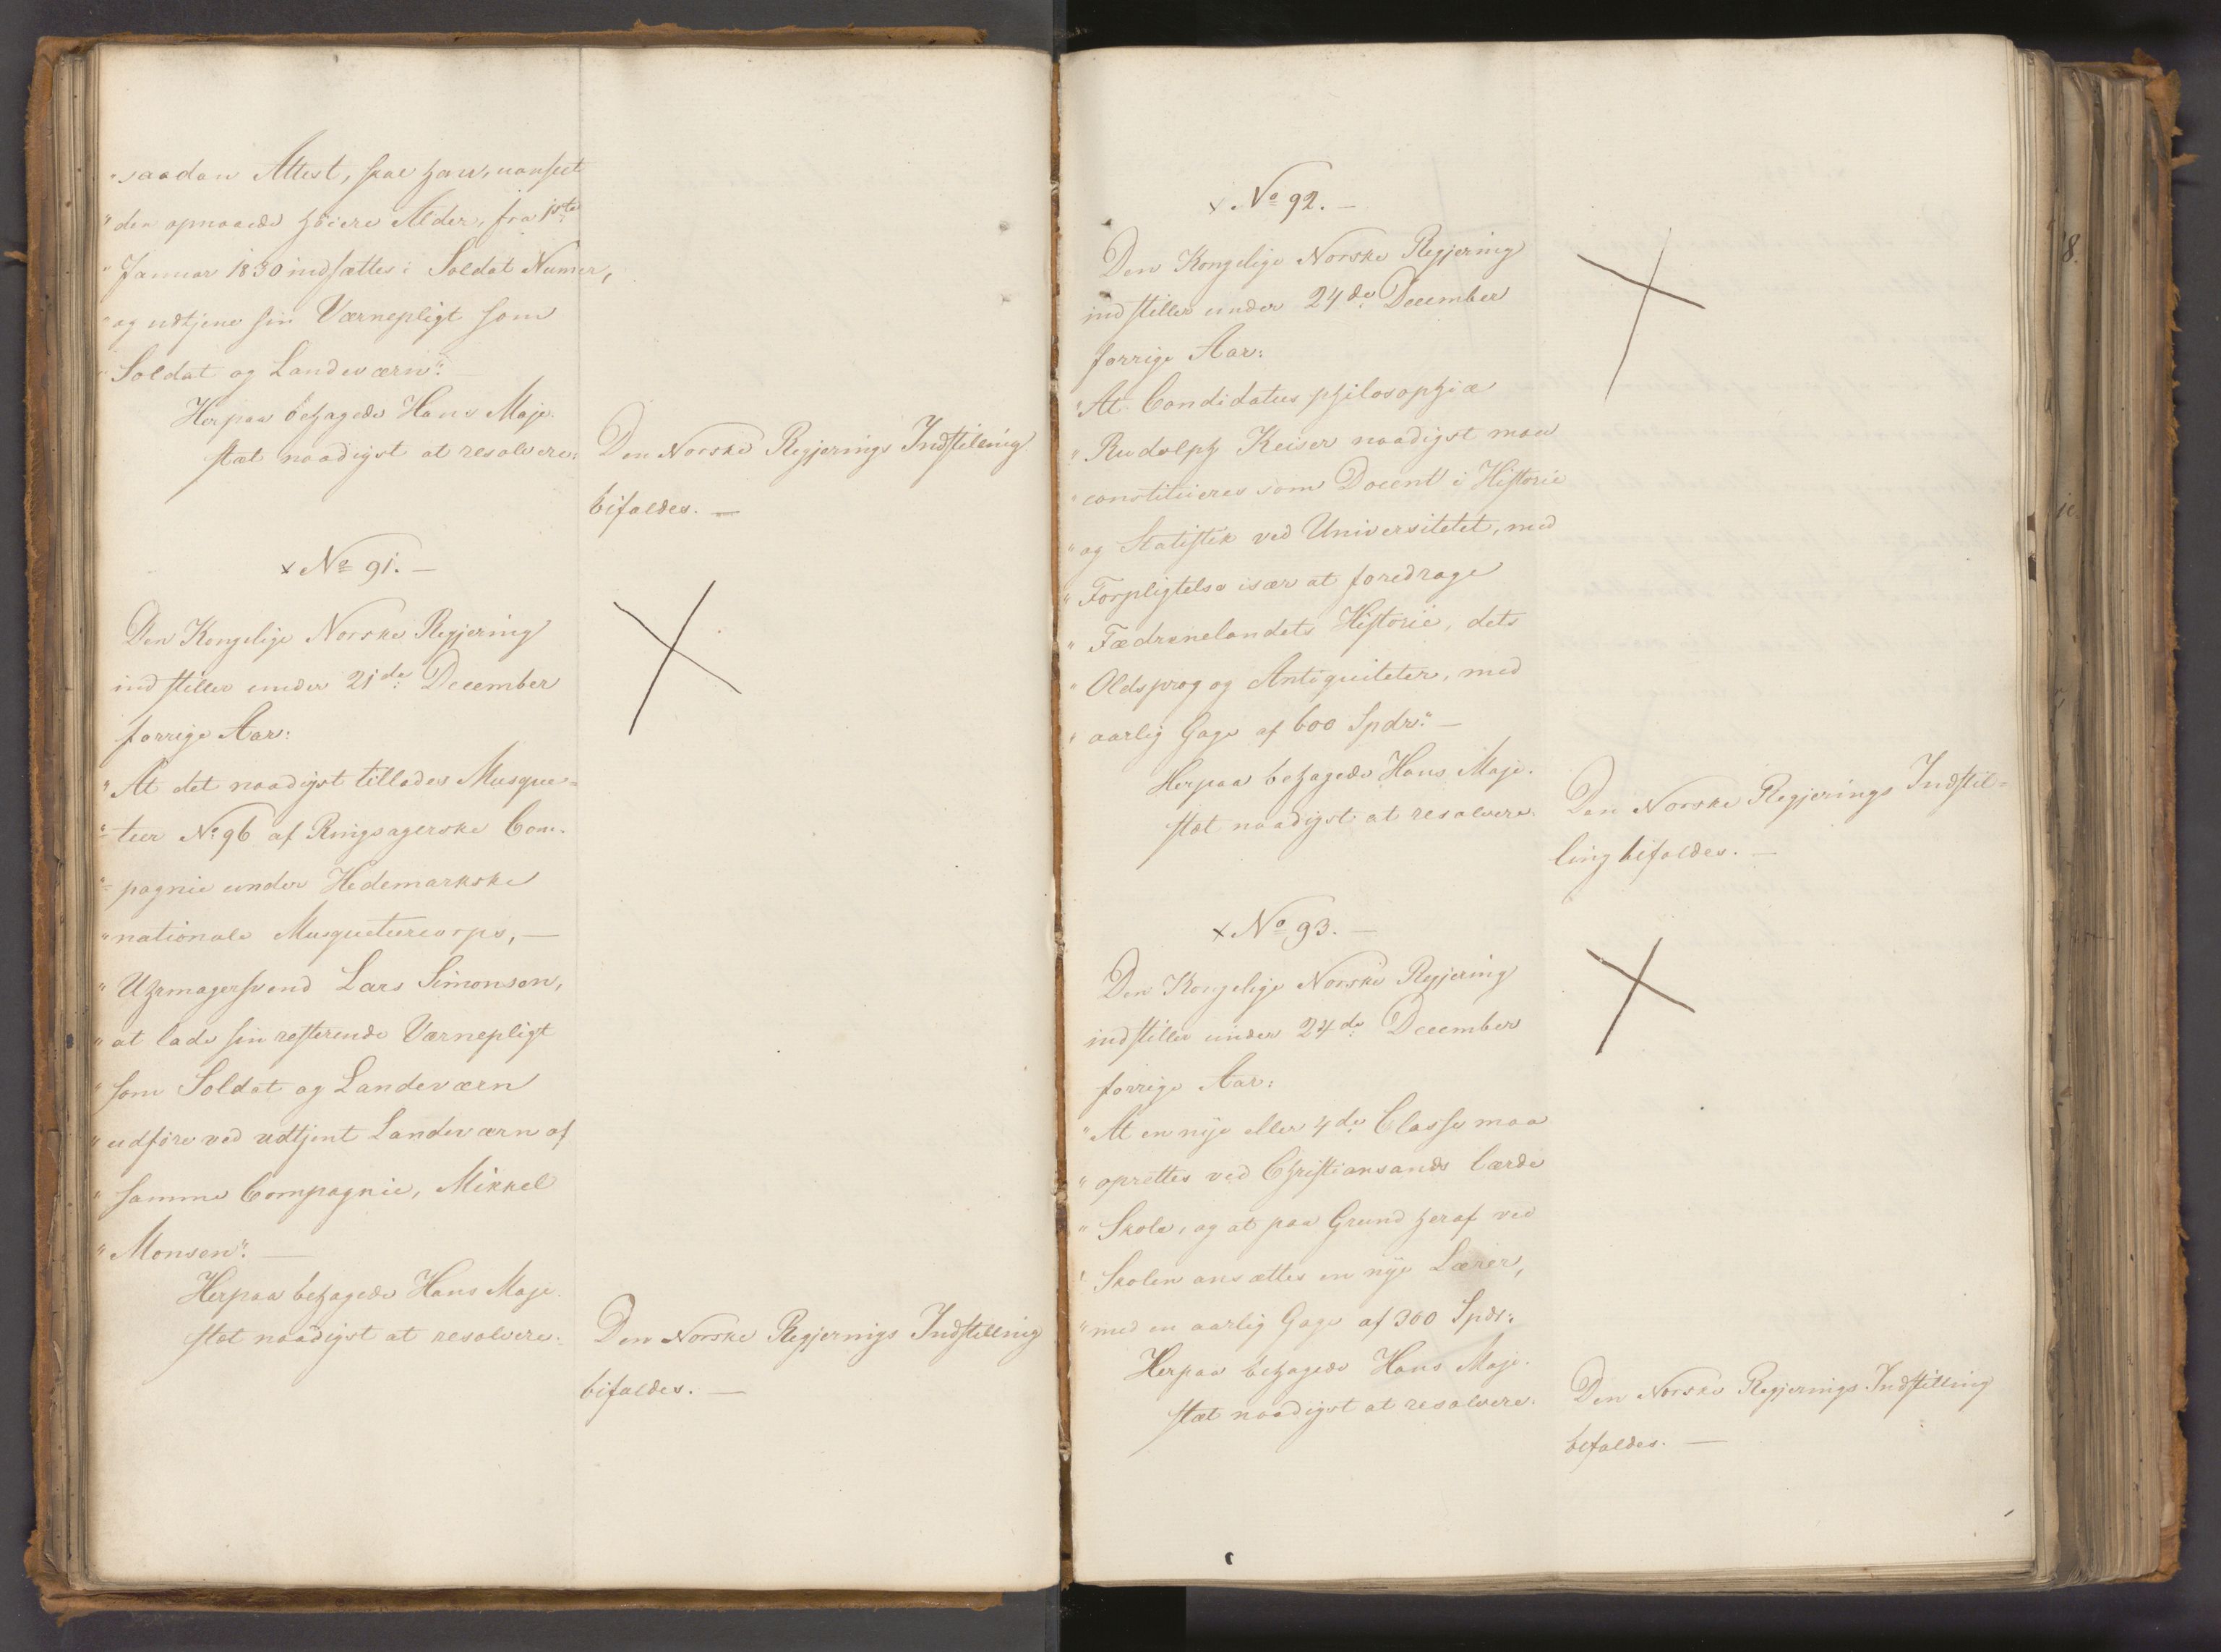 "saadan Attest, skal han, uanseet
"den opnaaede höiere Alder, fra 1ste
"Januar 1830 indsættes i Soldat Numer,
"og udtjene sin Værnepligt som
"Soldat og Landeværn".
Herpaa behagede Hans Maje-
stæt naadigst at resolvere:
Den Norske Regjerings Indstilling
bifaldes. —
x No 91. —
Den Kongelige Norske Regjering
indstiller under 21de December
forrige Aar:
"At det naadigst tillades Musque=
"=teer No 96 af Ringsagerske Com-
"=pagnie under Hedemarkske
"nationale Musqueteercorps, —
"Uhrmagersvend Lars Simonsen,
"at lade sin resterende Værnepligt
"som Soldat og Landeværn
"udföre ved udtjent Landeværn af
"samme Compagnie, Mikkel
"Monsen". —
Herpaa behagede Hans Maje-
stæt naadigst at resolvere:
Den Norske Regjerings Indstilling
bifaldes. —
x No 92. —
Den Kongelige Norske Regjering
indstiller under 24de December
forrige Aar:
"At Candidatus philosophiæ
"Rudolph Keiser naadigst maa
"constitueres som Docent i Historie
"og Statistik ved Universitetet, med
"Forpligtelse især at foredrage
"Fædrenelandets Historie, dets
"Oldsprog og Antiquiteter, med
"aarlig Gage af 600 Spdr". —
Herpaa behagede Hans Maje-
stæt naadigst at resolvere:
Den Norske Regjerings Indstil=
ling bifaldes. —
x No 93. —
Den Kongelige Norske Regjering
indstiller under 24de December
forrige Aar:
"At en nye eller 4de Classe maa
"oprettes ved Christiansands lærde
"Skole, og at paa Grund heraf ved
"Skolen ansættes en nye Lærer,
"med en aarlig Gage af 300 Spdr.
Herpaa behagede Hans Maje-
stæt naadigst at resolvere:
Den Norske Regjerings Indstilling
bifaldes. —